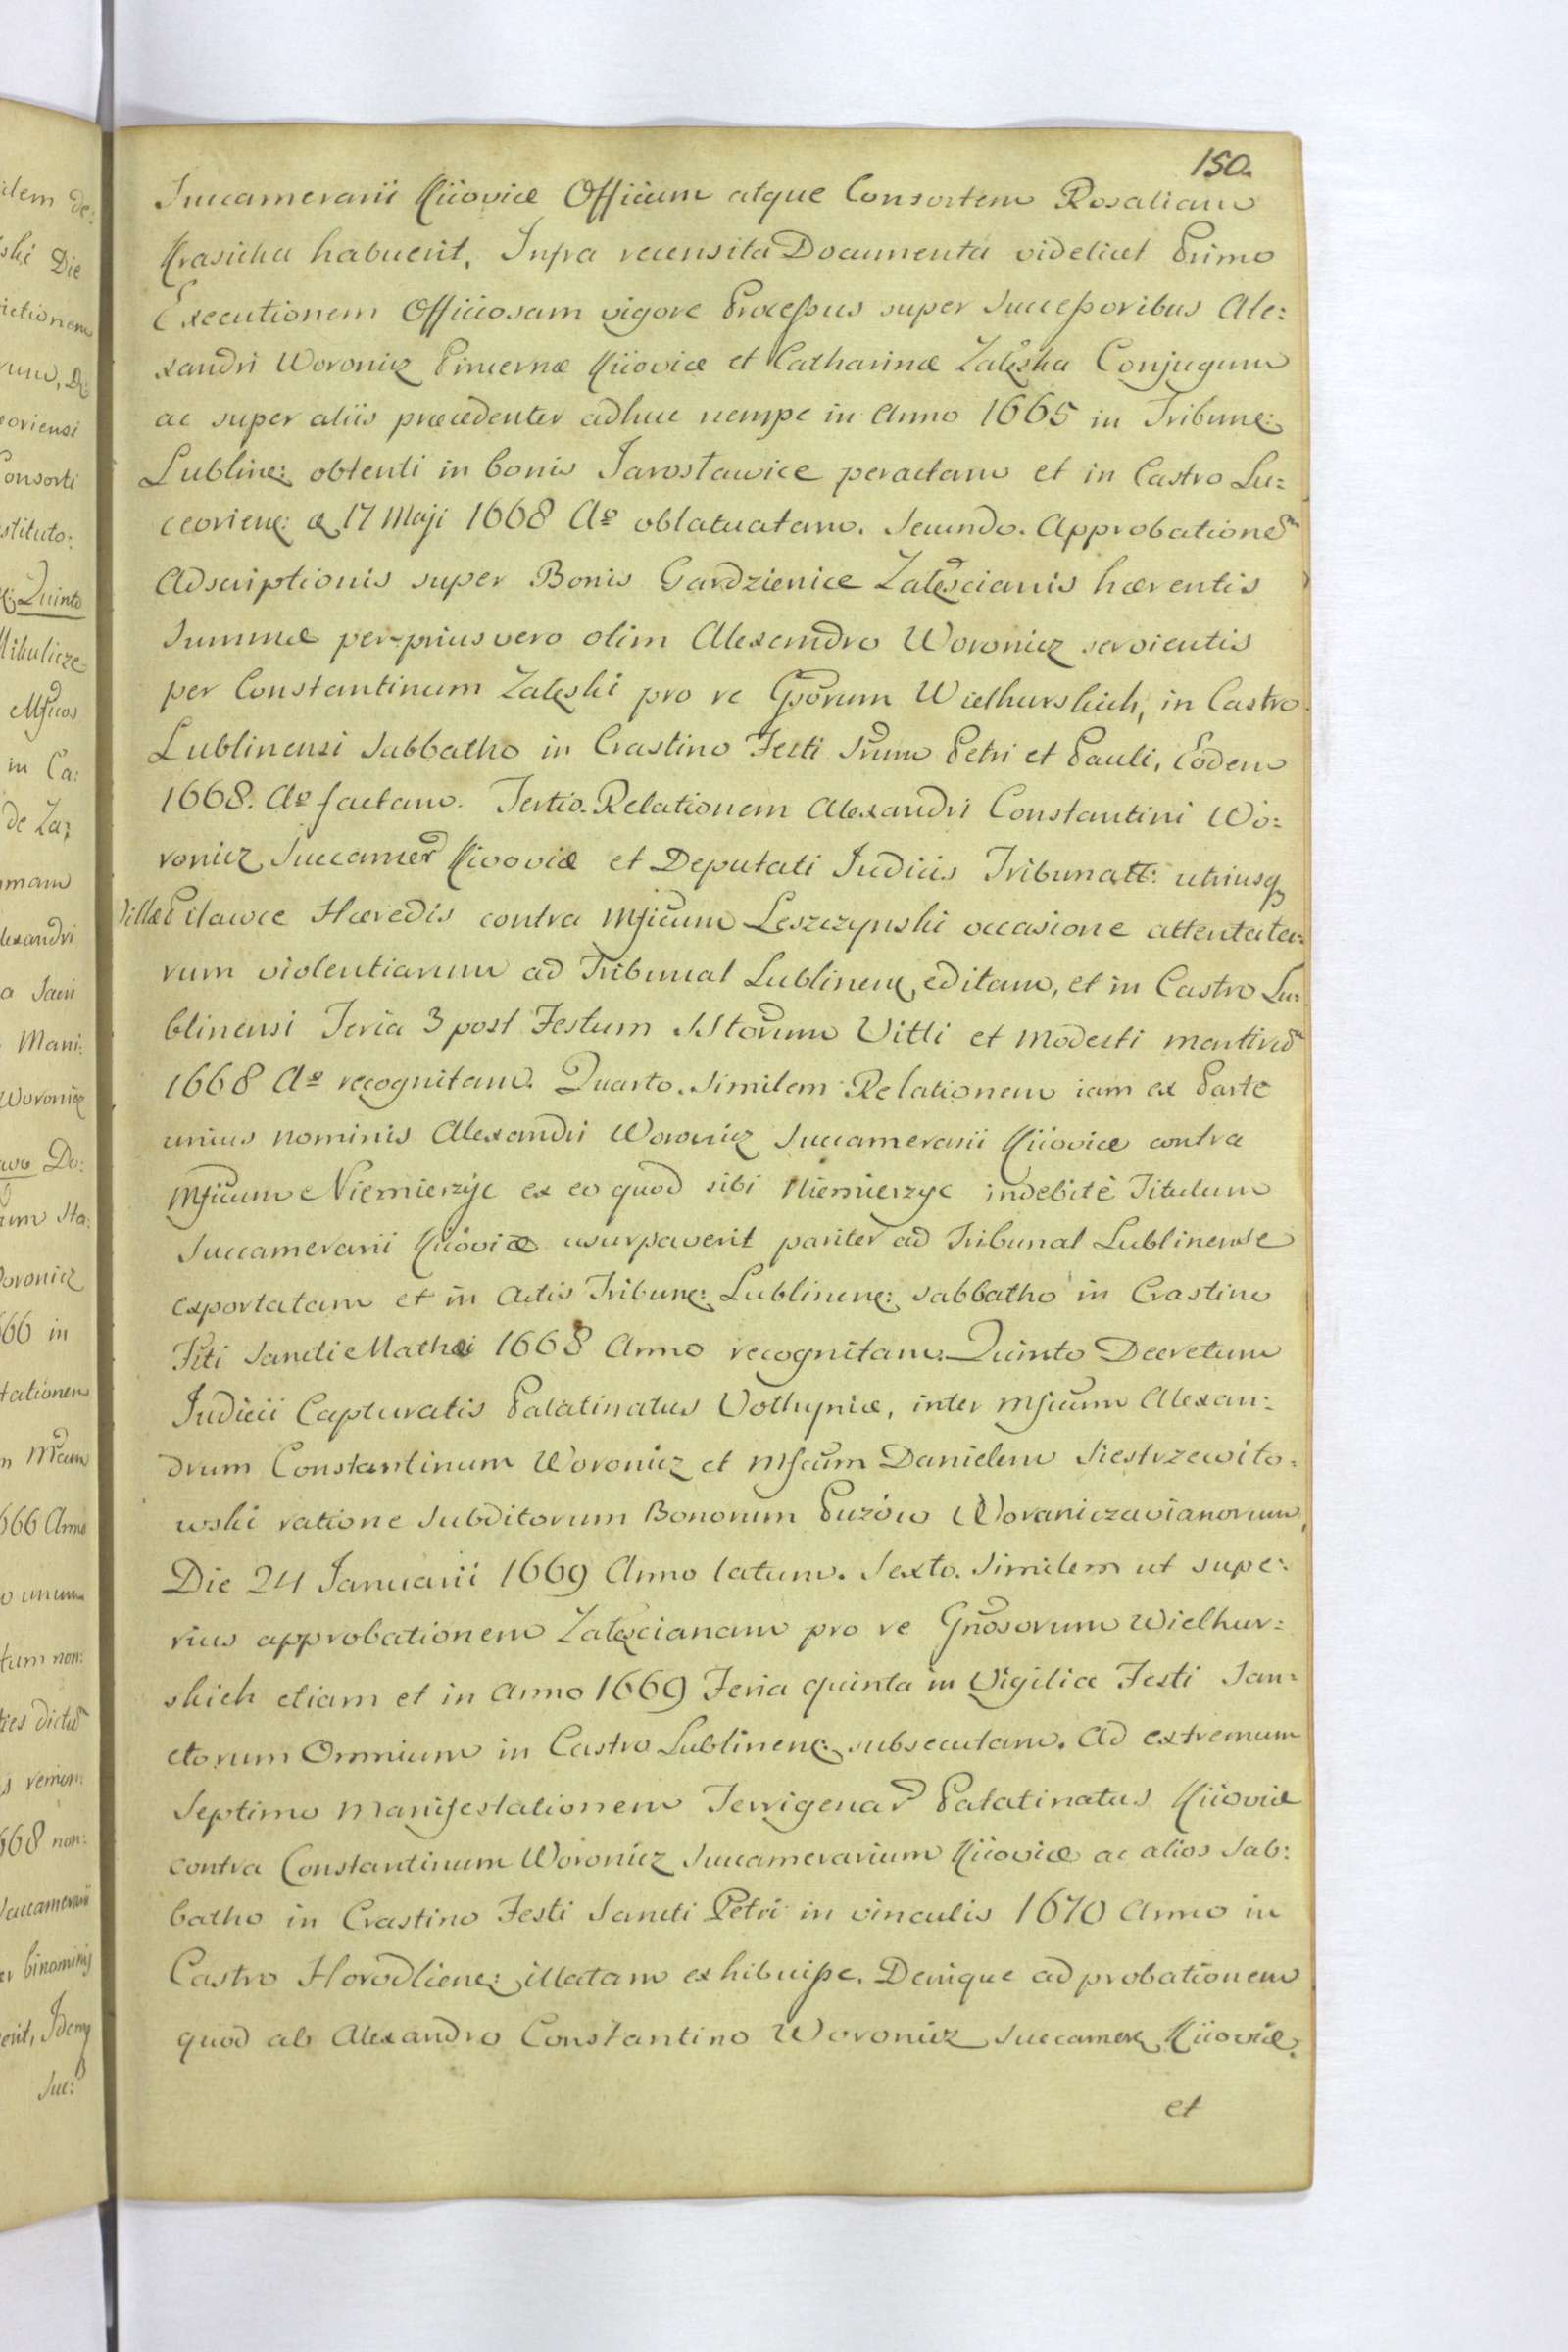 150.
Succamerarii Kiioviæ Officium atque Consortem Rosaliam
Krasicka habuerit, Infra recensita Documenta videlicet Primo
Executionem Officiosam vigore Processus super Successoribus Ale:
xandri Woronicz Pincernæ Kiioviæ et Catharinæ Zaleska Conjugum
ac super aliis præcedenter adhuc nempe in Anno 1665 in Tribune:
Lubline: obtenti in bonis Jarosławice peractam et in Castro Lu:
ceoriene: a 17 Maji 1668 Aº oblatuatam. Secundo. Approbatione
Adscriptionis super Bonis Gardzienice Zalescianis hærentis
Summæ per-prius vero olim Alexandro Woronicz servientis
per Constantinum Zaleski pro re Gsorum Wielhurskich, in Castro
Lublinensi Sabbatho in Crastino Festi Srum Petri et Pauli, Eodem
1668. Aº factam. Tertio. Relationem Alexandri Constantini Wo:
ronicz Succamer Kiioviæ et Deputati Judiciis Tribunatt: utriusq
Villæ Pilawce Hæredis contra Mficum Leszczynski occasione attentata:
rum violentiarum ad Tribunal Lublinene editam, et in Castro Lu:
blinensi Feria 3 post Festum SStorum Vitti et Modesti martir
1668 Aº recognitam. Quarto. Similem Relationem iam ex Parte
unius nominis Alexandri Woronicz Succamerarii Kiioviæ contra
Mficum Niemierzyc ex eo quod sibi Niemierzyc indebitè Titulum
Succamerarii Kiioviæ usurpaverit pariter ad Tribunal Lublinense
exportatam et in Actis Tribune: Lublinene: Sabbatho in Crastino
Fsti Sancti Mathæi 1668 Anno recognitam. Quinto Decretum
Judicii Capturalis Palatinatus Volhyniæ, inter Mficum Alexan:
drum Constantinum Woronicz et Mficum Danielem Siestrzewito:
wski ratione Subditorum Bonorum Puzów Woraniczavianorum,
Die 24 Januarii 1669 Anno latum. Sexto. Similem ut supe:
rius approbationem Zalescianam pro re Gnosorum Wielhur:
skich etiam et in Anno 1669 Feria quinta in Vigilia Festi San:
ctorum Omnium in Castro Lublinene: subsecutam. Ad extremum
Septimo Manifestationem Terrigenar Palatinatus Kiioviæ
contra Constantinum Woronicz Succamerarium Kiioviæ ac alios Sab:
batho in Crastino Festi Sancti Petri in vinculis 1670 Anno in
Castro Horodliene: illatam exhibuisse. Denique ad probationem
quod ab Alexandro Constantino Woronicz Succamer Kiioviæ
et